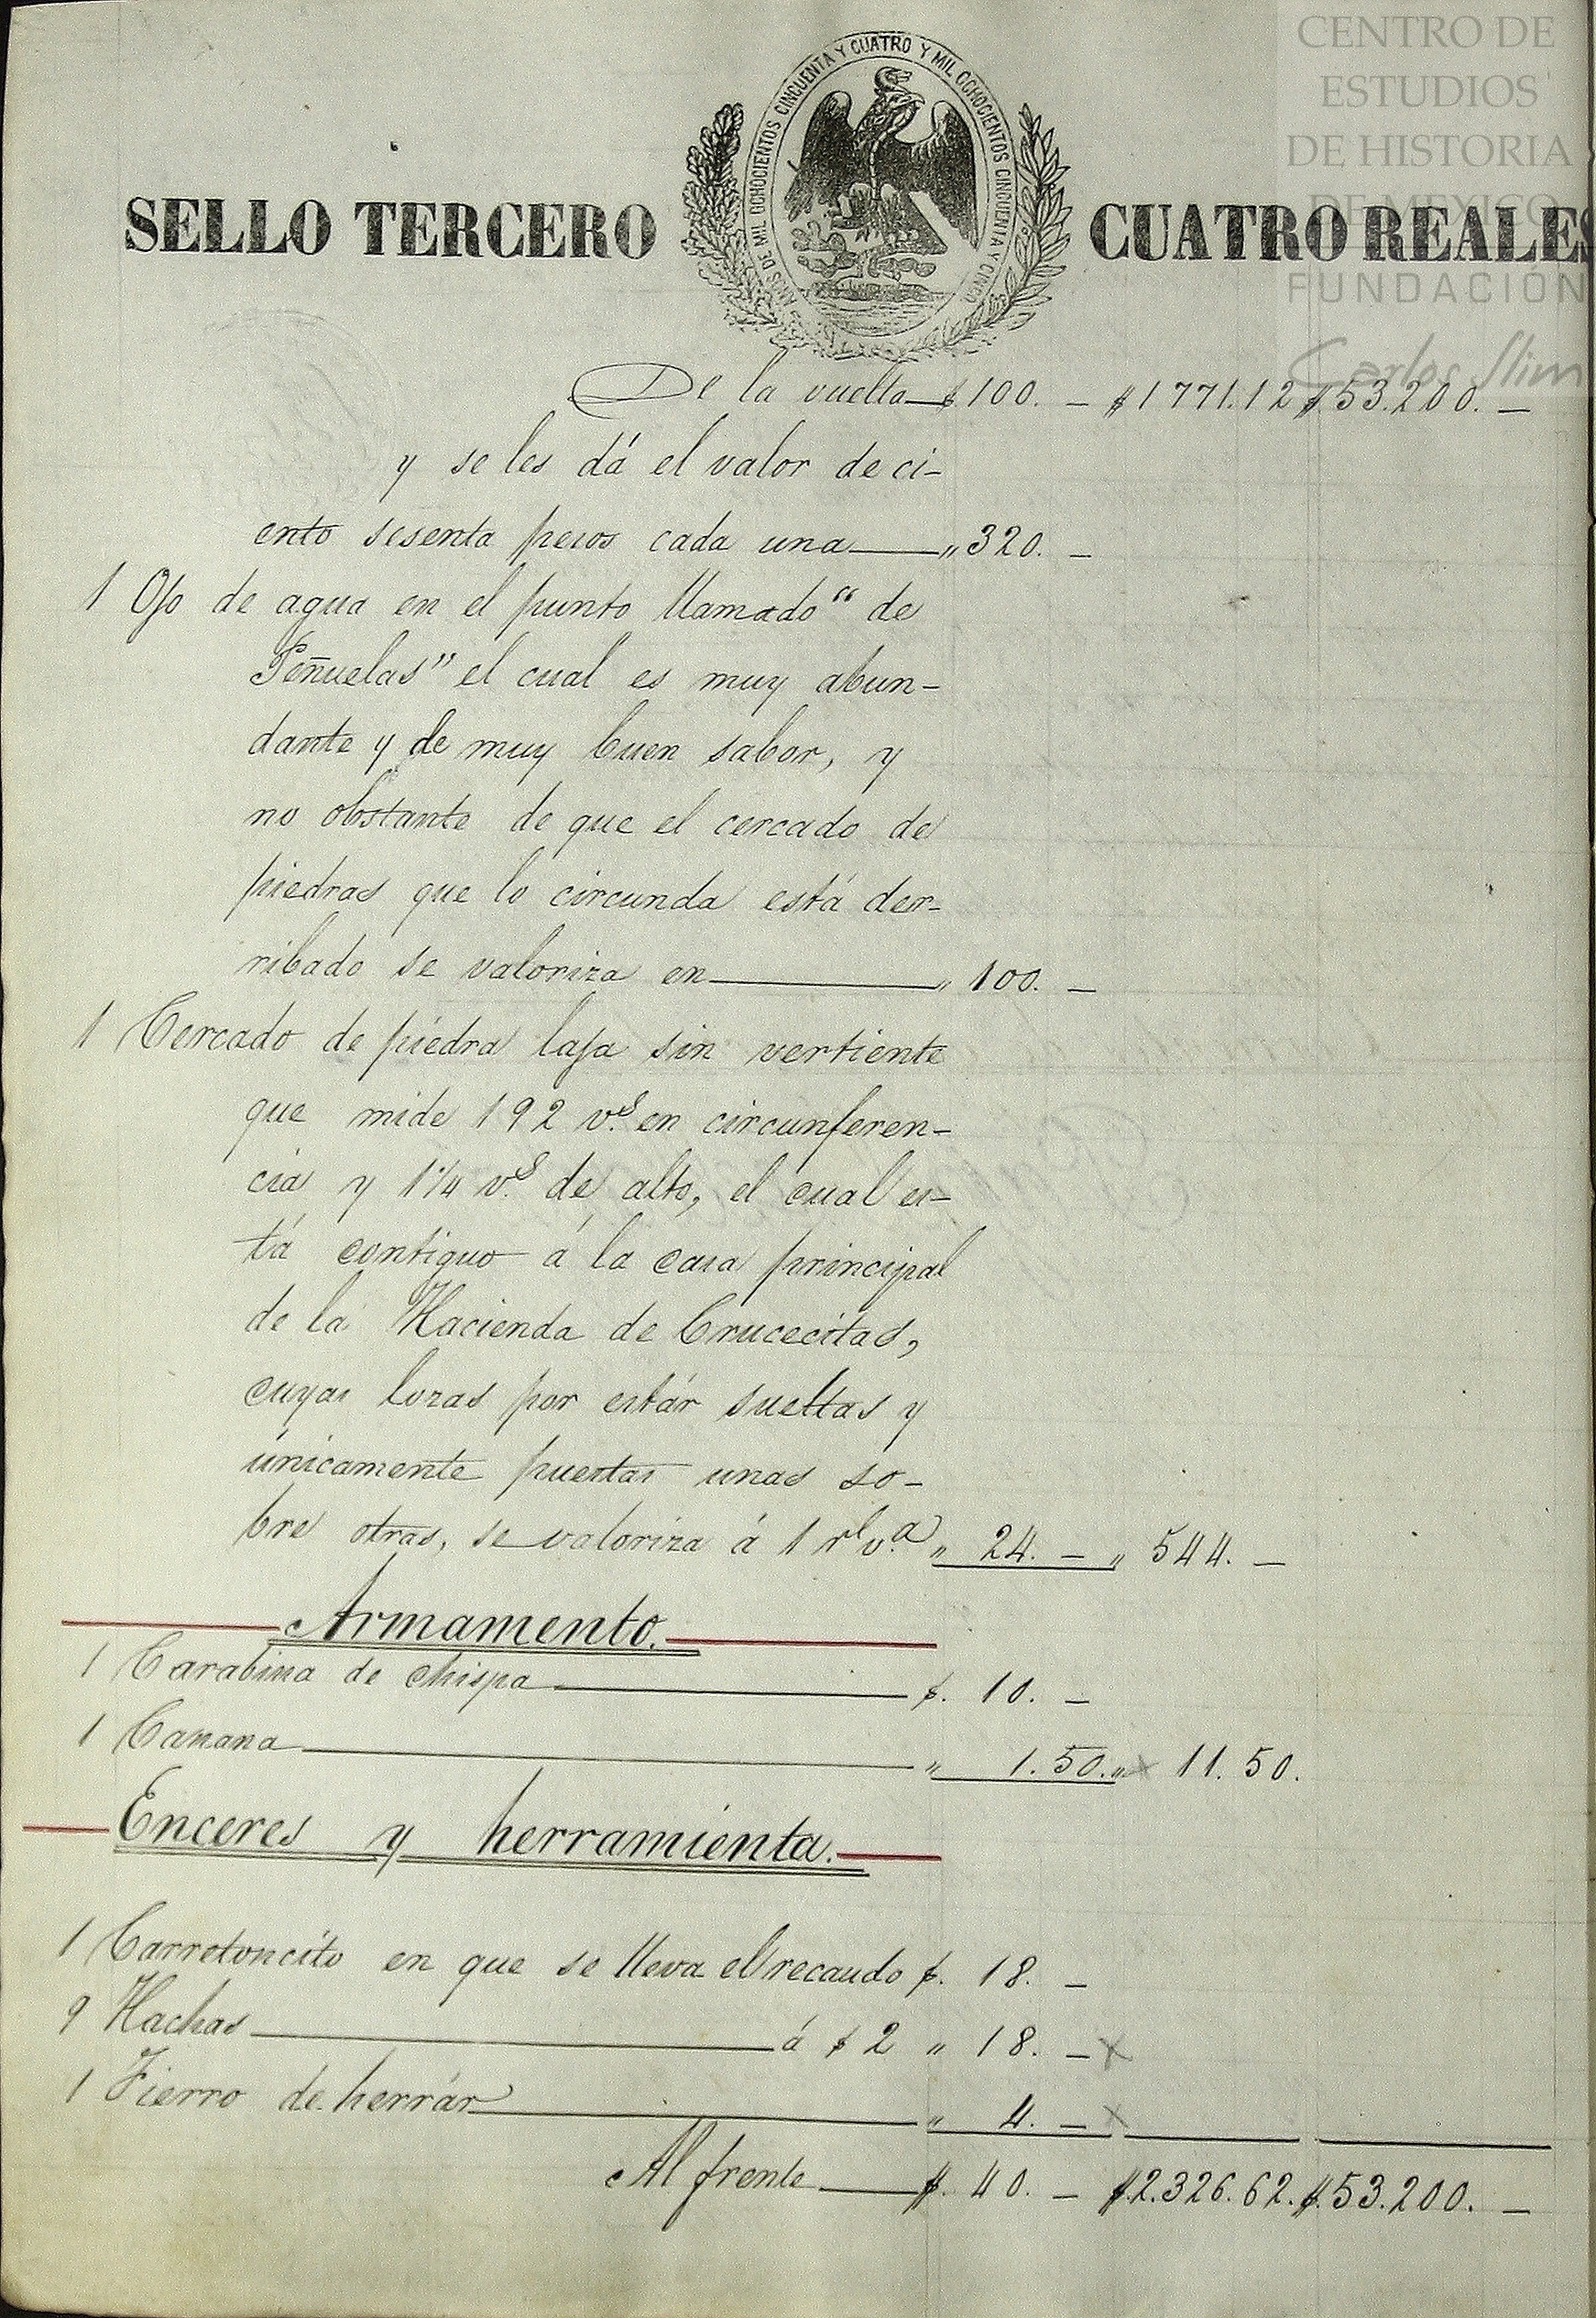 CENTRO DE
ESTUDIOS
DE HISTORIA
DE MÉXICO
FUNDACIÓN
Carlos Slim
AÑOS DE MIL OCHOCIENTOS CINCUENTA Y CUATRO Y MIL OCHOCIENTOS CINCUENTA Y CINCO
SELLO TERCERO CUATRO REALES
De la vuelta $ 100. — $1771.12 $.53.200. —
y se les dá el valor de ci-
ento sesenta pesos cada una " 320. —
1 Ojo de agua en el punto llamado "de
Peñuelas" el cual es muy abun-
dante y de muy buen sabor, y
no obstante de que el cercado de
piedras que lo circunda está der-
ribado se valoriza en " 100. —
1 Cercado de piedra laja sin vertiente
que mide 192 v.s en circunferen-
cia y 1 1/4 v.s de alto, el cual es-
tá contiguo á la casa principal
de la Hacienda de Crucecitas,
cuyas lozas por estár sueltas y
únicamente puestas unas so-
bre otras, se valoriza á 1 rl v.a " 24. — " 544. —
Armamento.
1 Carabina de chispa $. 10. —
1 Canana " 1.50. " x 11.50.
Enceres y herramienta.
1 Carretoncito en que se lleva el recaudo $. 18. —
9 Hachas á $ 2 " 18. — x
1 Fierro de herrár " 4. — x
Al frente $. 40. — $.2.326.62. $.53.200. —